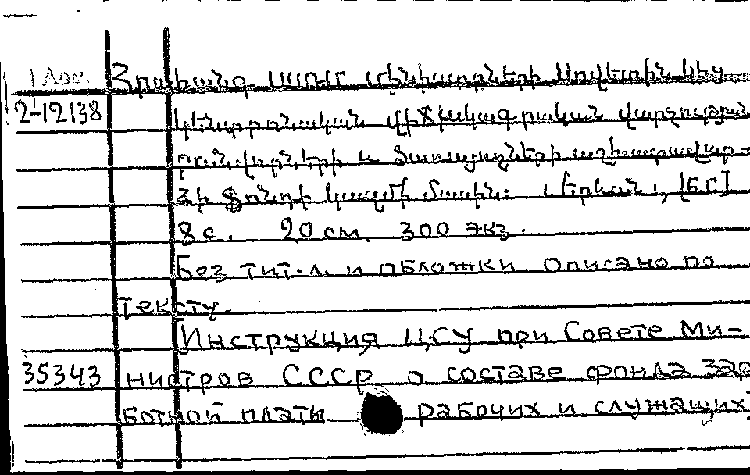 1 Лос. Հրահանգ ՍՍՌՄ մինիստրների Սովետին կից
2-12138 կենտրոնական վիճակագրական վարչության
բանվորների և ծառայողների աշխատավար-
ձի ֆոնդի կազմի մասին: [Երևան], [Б.Г.]
8 с. 20 см. 300 экз.
Без тит.л. и обложки описано по
тексту.
[Инструкция ЦСУ при Совете Ми-
35343 нистров СССР о составе фонда зар
ботной платы рабочих и служащих]